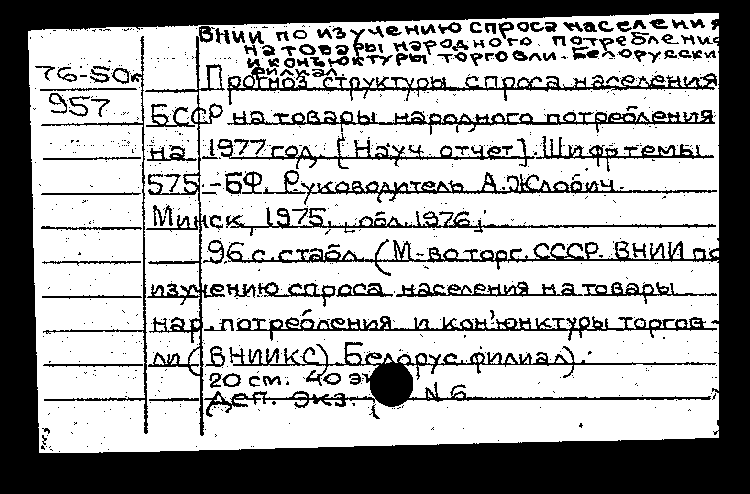 ВНИИ по изучению спроса населения
на товары народного потребления
и конъюктуры торговли. Белорусский
филиал.
76-50к Прогноз структуры спроса населения
957 БССР на товары народного потребления
на 1977 год. [Науч. отчет]. Шифр темы
575-БФ. Руководитель А. Жлобич.
Минск, 1975, обл. 1976.
96 с. с табл. (М-во торг. СССР. ВНИИ по
изучению спроса населения на товары
нар. потребления и кон'юнктуры торгов-
ли (ВНИИКС). Белорус. филиал).
20 см. 40 эк
Деп. экз. N 6